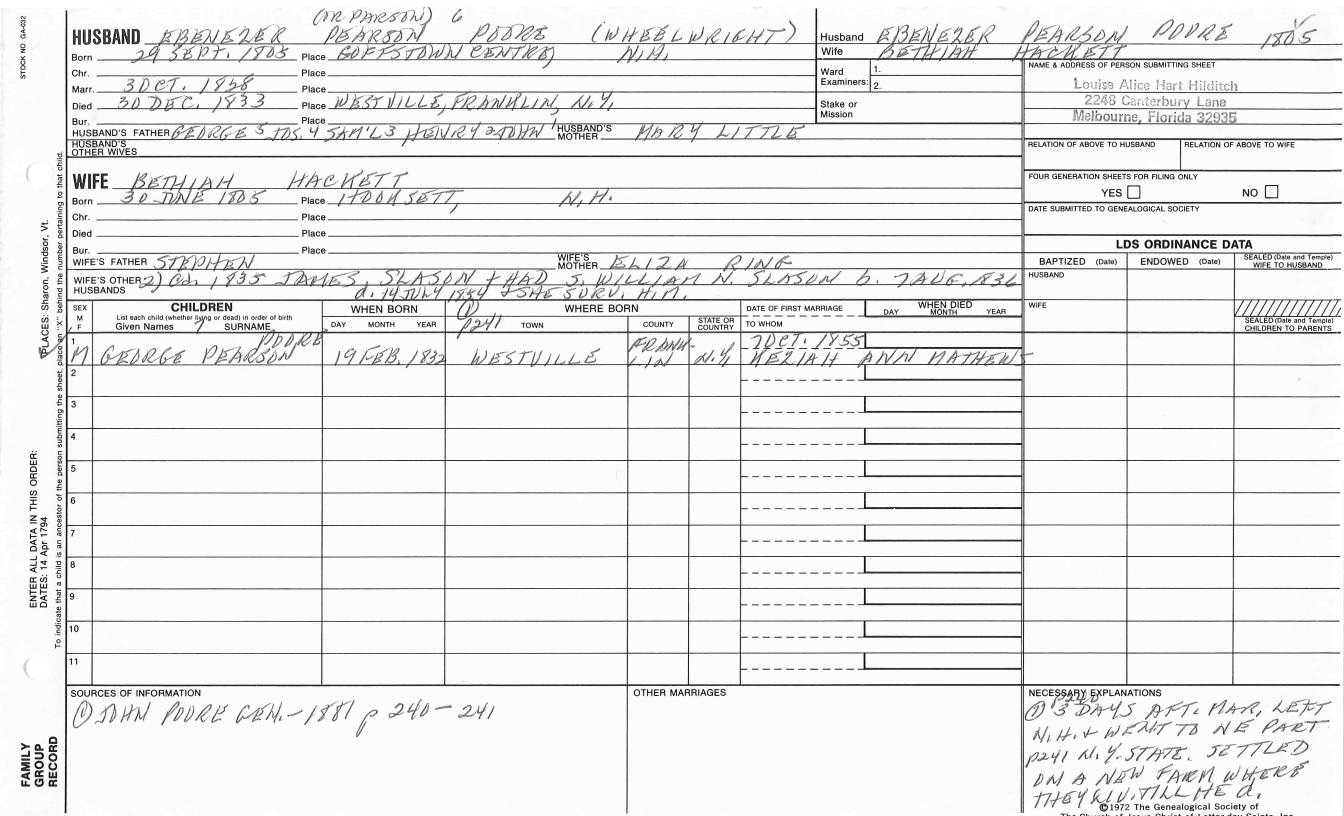 STOCK NO. GA-032
(OR PARSON) 6
HUSBAND EBENEZER PEARSON POORE (WHEELWRIGHT)
Born 29 SEPT. 1805 Place GOFFSTOWN CENTRE, N.H.
Chr. Place
Marr. 3 OCT. 1828 Place
Died 30 DEC. 1833 Place WESTVILLE, FRANKLIN, N.Y.
Bur. Place
HUSBAND'S FATHER GEORGE 5 JOS. 4 SAM'L 3 HENRY 2 JOHN 1 HUSBAND'S MOTHER MARY LITTLE
HUSBAND'S OTHER WIVES
Husband EBENEZER PEARSON POORE 1805
Wife BETHIAH HACKETT
Ward Examiners: 1.
2.
Stake or Mission
NAME & ADDRESS OF PERSON SUBMITTING SHEET
Louisa Alice Hart Hilditch
2248 Canterbury Lane
Melbourne, Florida 32935
RELATION OF ABOVE TO HUSBAND RELATION OF ABOVE TO WIFE
FOUR GENERATION SHEETS FOR FILING ONLY
YES NO
DATE SUBMITTED TO GENEALOGICAL SOCIETY
WIFE BETHIAH HACKETT
Born 30 JUNE 1805 Place HOOKSETT, N.H.
Chr. Place
Died Place
Bur. Place
WIFE'S FATHER STEPHEN WIFE'S MOTHER ELIZA RING
WIFE'S OTHER HUSBANDS 2) Cd. 1835 JAMES SLASON + HAD S. WILLIAM N. SLASON b. 7 AUG. 1836
d. 14 JULY 1854 & SHE SURV. HIM.
LDS ORDINANCE DATA
BAPTIZED (Date) ENDOWED (Date) SEALED (Date and Temple) WIFE TO HUSBAND
HUSBAND
WIFE
SEALED (Date and Temple) CHILDREN TO PARENTS
SEX M F CHILDREN WHEN BORN WHERE BORN DATE OF FIRST MARRIAGE WHEN DIED
List each child (whether living or dead) in order of birth
Given Names 7 SURNAME DAY MONTH YEAR ① p241 TOWN COUNTY STATE OR COUNTRY TO WHOM DAY MONTH YEAR
1 M GEORGE PEARSON POORE 19 FEB. 1832 WESTVILLE FRANKLIN N.Y. 7 OCT. 1855
KEZIAH ANN MATHEWS
2
3
4
5
6
7
8
9
10
11
SOURCES OF INFORMATION
① JOHN POORE GEN. - 1881 p 240-241
OTHER MARRIAGES
NECESSARY EXPLANATIONS
p240
① 3 DAYS AFT. MAR, LEFT
N.H. & WENT TO NE PART
p241 N.Y. STATE. SETTLED
ON A NEW FARM WHERE
THEY LIV. TILL HE d.
©1972 The Genealogical Society of
The Church of Jesus Christ of Latter-day Saints, Inc.
ENTER ALL DATA IN THIS ORDER:
DATES: 14 Apr 1794
PLACES: Sharon, Windsor, Vt.
To indicate that a child is an ancestor of the person submitting the sheet, place an "X" behind the number pertaining to that child.
FAMILY
GROUP
RECORD